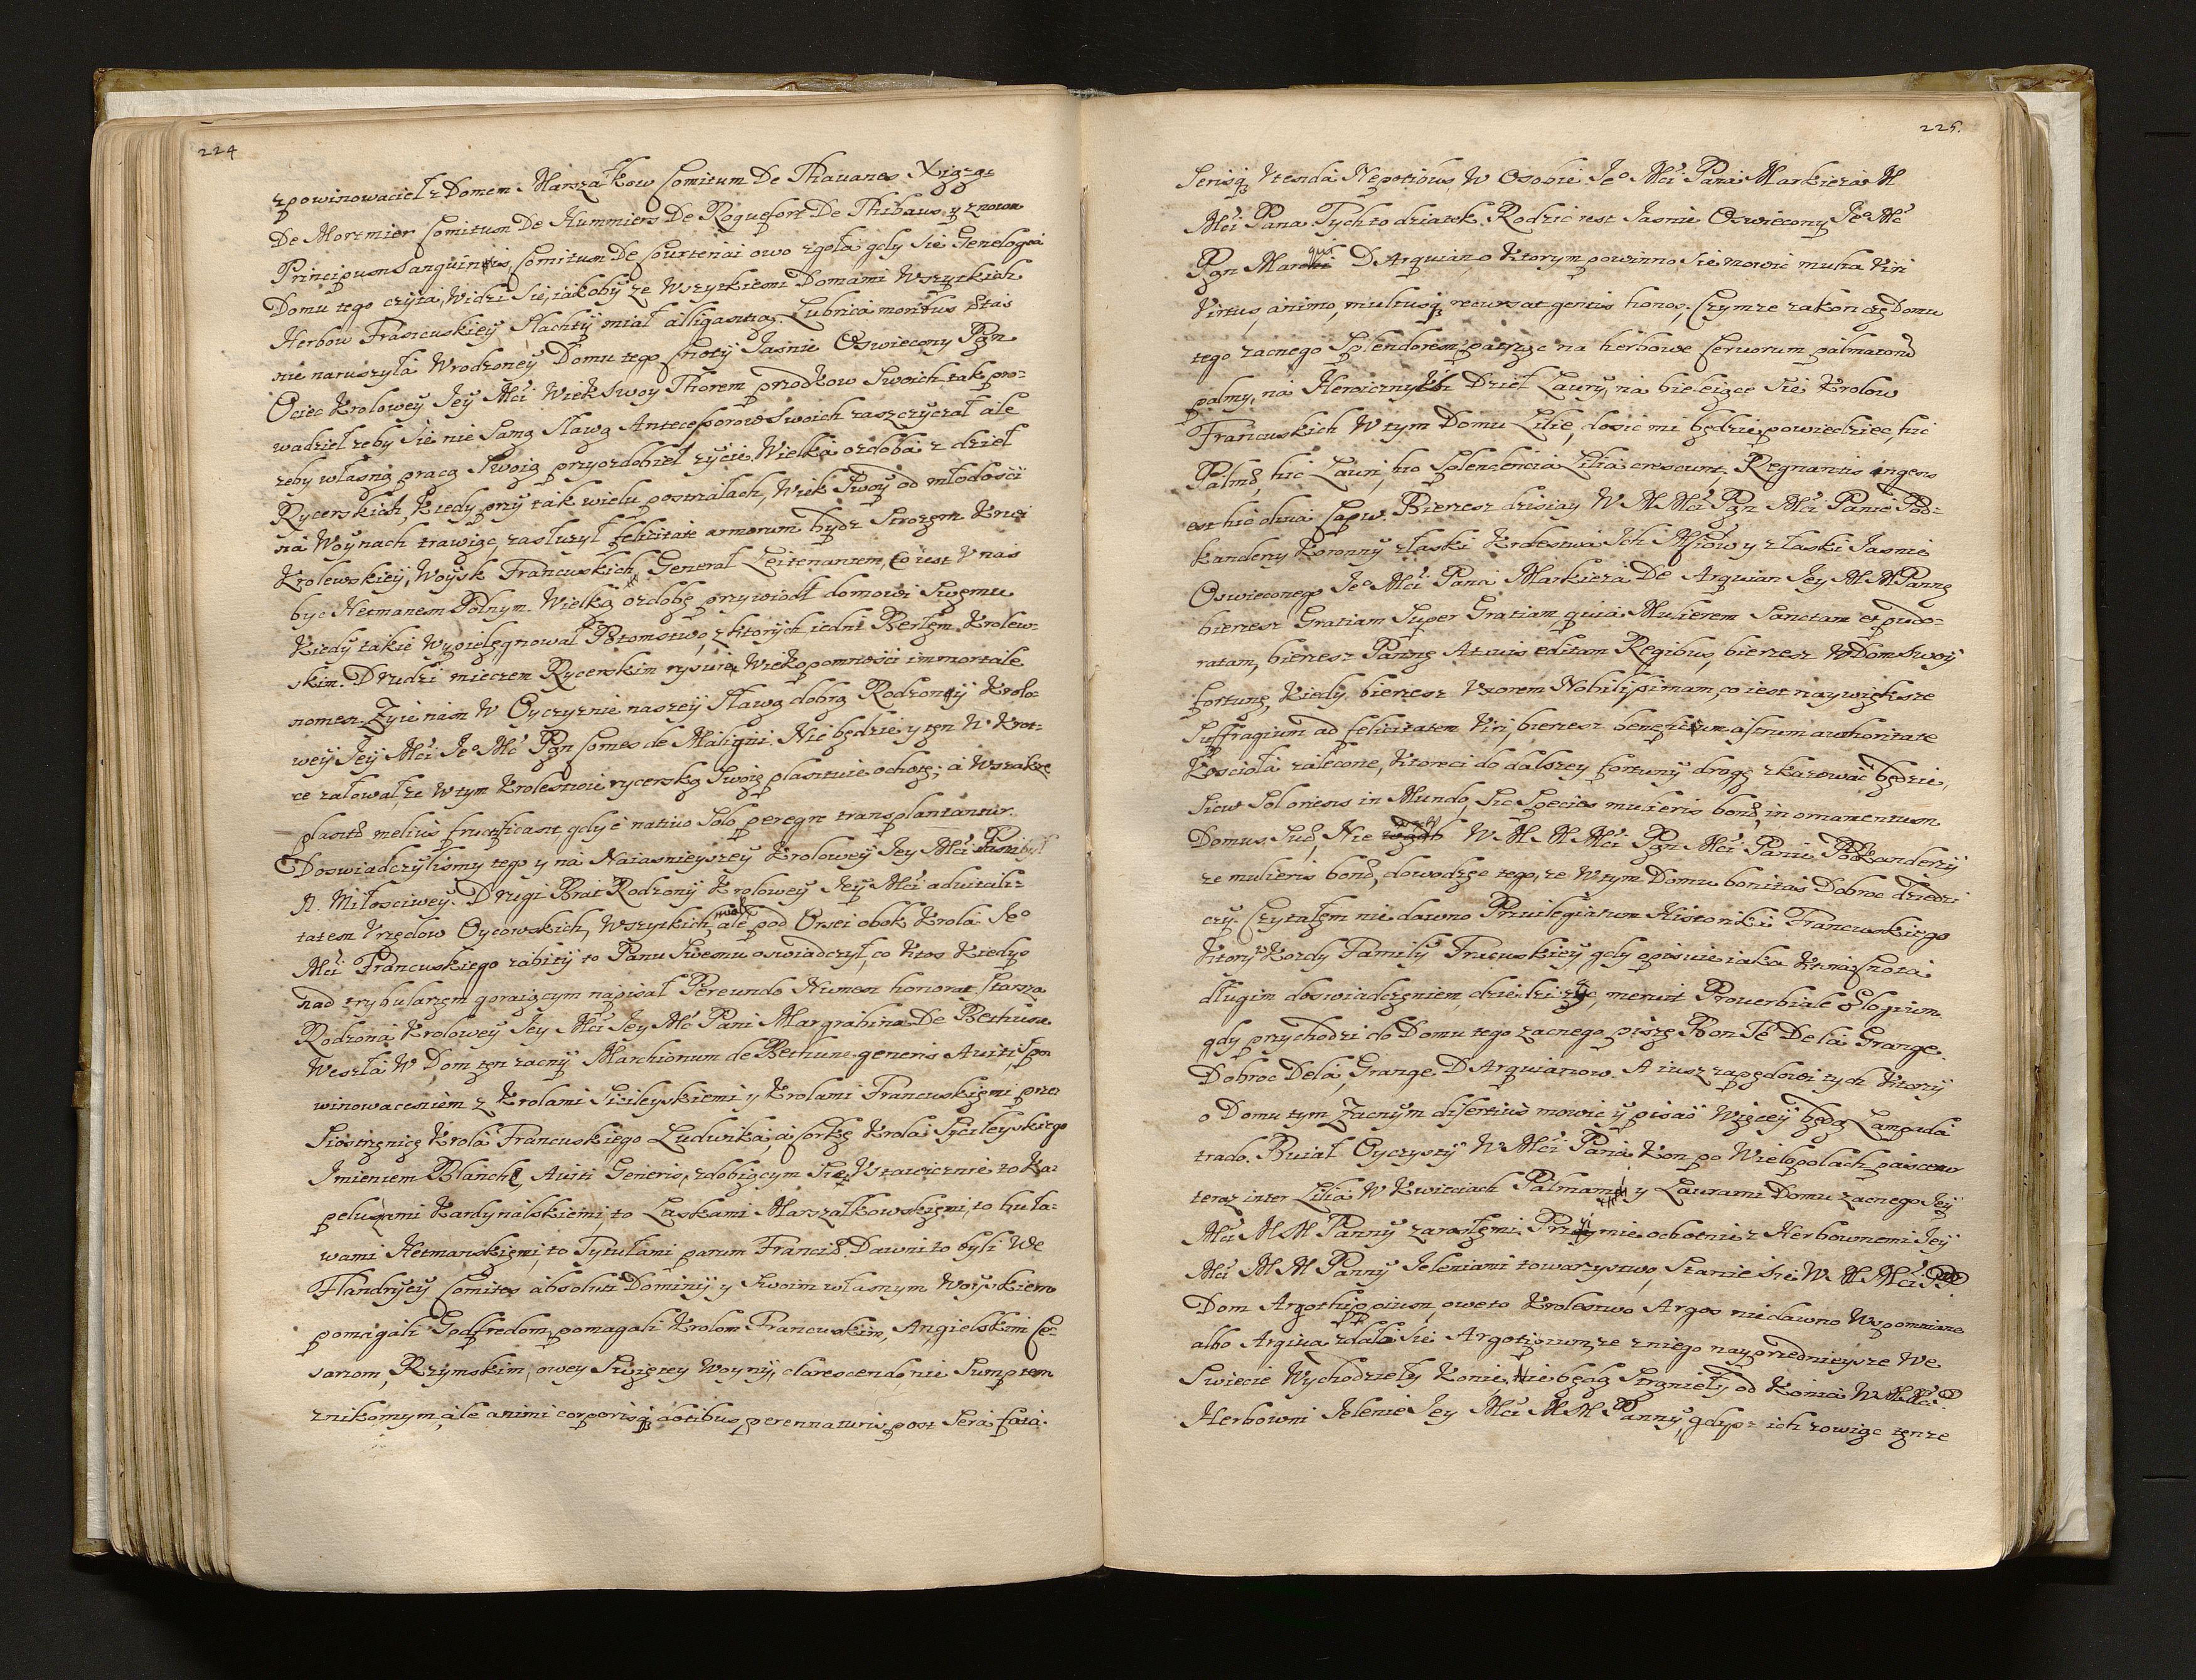 224
zpowinowacieł z Domem Marszałkow Comitum De Thauanes Xiąząt
De Mortmier Comitum De Hummiers De Roquefort De Thibaus y znowu
Principum Sanguinis, Comitum De Courtenai owo zgoła gdy sie Genelogia
Domu tego czyta, Widzi Się, iakoby ze Wszytkiemi Domami Wszytkich
Herbow Francuskieÿ Slachtÿ miał alligantią. Lubrica moribus ætas
nie naruszyła Wrodzoneÿ Domu tego Cnotÿ Jasnie Oswiecony Pąn
Ociec Krolowey Jeÿ Mći Wiek Swoy Thorem przodkow Swoich tak pro-
wadzieł zeby Się nie Samą Sławą Antecessorow Swoich zaszczyczał ale
zeby własną pracą Swoią przyozdobieł zycie Wielka ozdoba z dzieł
Rycerskich, Kiedy prÿ tak wielu postrzałach, Wiek Swoÿ od młodosći
na Woÿnach trawiąc, zasłuzył felicitate armorum bydz Strozem Krwi
Krolewskieÿ, Woÿsk Francuskich General Leitenantem, co iest V nas
byc Hetmanem Polnym. Wielką ozdobę przywiodł domowi Swęmu
Kiedy takie Wypielęgnował Potomstwo, z ktorych iedni Berłęm Krolew-
skim. Drudzi mieczem Rycerskim rysuią Wiekopomnosći immortale
nomen. Zyie nam W Oyczyznie naszeÿ Sławą dobrą Rodzonÿ Krolo-
weÿ Jeÿ Mći Jeo Mć Pąn Comes de Maligni. Nie będzie y tęn W Krot-
ce załował, ze W tym Krolestwie rycerską Swoią plantuie ochotę; a Wszakze
plantæ melius fructificant, gdy è natiuo Solo peregre transplantantur.
Doswiadczylismy tego y na Naiasnieyszey Kroloweÿ Jey Mći Pani
N. Miłosciweÿ. Drugi Brat Rodzonÿ Kroloweÿ Jeÿ Mći aduitali-
tatem Vrzędow Oycowskich, Wszytkich miał ale pod Orsei obok Krola Jeo
Mći Francuskiego zabitÿ to Panu Swemu oswiadczył, co Ktos Kiedÿs
nad trybularzem goraiącym napisał Pereundo Numen honorat, Starsza
Rodzona Krolowey Jey Mći Jey Mć Pani Margrabina De Bethune
Weszła W Dom tęn zacnÿ Marchionum de Bethune generis Auiti, spo
winowacenięm z Krolami Siciliyskiemi y Krolami Francuskięmi przez
Siostrzęnicę Krola Francuskiego Ludwika, a Corkę Krola Syciliyskiego
Jmieniem Blanche, Auiti Generis, zdobiącym Się Vstawicznie to Ka-
peluszami Kardynalskiemi, to Laskami Marszałkowskięmi, to buła-
wami Hetmanskięmi, to Tytułami parum Franciæ. Dawni to byli We
Flandryeÿ Comites absoluti Dominÿ y Swoim własnym Woÿskiem
pomagali Godfredom, pomagali Krolom Francuskim, Angielskim Ce-
sarzom, Rzÿmskim, owey Swiętey Woynÿ, clarescendo nie Sumptem
znikomym, ale animi corporisq dotibus, perennaturis, post Sera fata.
225.
Serisq Vtenda Nepotibus, W Osobie Jeo Mći Pana Markieza M
Mći Pana. Tych to dziatek Rodzic iest Jasnie Oswiecony Jeo Mć
Pąn Marquis D'Arquian, o Ktorym powinno Sie mowić multa Viri
Virtus, animo, multusq recursat gentis honos; Czymze zakonczę Domu
tego zacnego Splendorem, patrząc na herbowe Ceruorum palmatorū
palmy, na Heroicznych Dzieł Laurÿ, na bieleiące Się Krolow
Francuskich W tym Domu Lilię, dosić mi będzie powiedziec, hic
Palmæ, hic Lauri, hic Splendencia Lilia crescunt, Regnantis ingens
est hic diua Caput. Bierzesz dzisiay W M Mći Pąn Mći Panie Pod-
kanderzy Koronnÿ z łaski Krolestwa Ich Msciow y z łaski Jasnie
Oswieconego Jeo Mći Pana Markieza De Arquian Jey M M Pannę
bierzesz Gratiam Super Gratiam quia Mulierem Sanctam et pudo-
ratam, bierzesz Pannę Atauis editam Regibus, bierzesz W Dom Swoÿ
fortunę, Kiedy bierzesz Vxorem Nobilissimam, co iest naywiększe
Suffragium ad felicitatem Viri, bierzesz beneficium astrum authoritate
Koscioła zalecone, Ktoreci do dalszey fortunÿ drogę zkazować będzie,
Sicut Sol oriens in Mundo, Sic Species mulieris bonæ, in ornamentum
Domus Suæ, Nie W M M Mći Pąn Mći Panie Podkanderzÿ
ze mulieris bonæ, dowodzę tego, ze W tym Domu bonitas Dobroc dziedzi
czy. Czytałem nie dawno Priuilegiatum Historiki Francuskiego
Ktory Kozdy Familÿ Francuskieÿ gdy opisuie iaka Ktora Cnota
długim doswiadczęniem, dziedziczÿ, menuit Prouerbiale Elogium
gdy przychodzi do Domu tego zacnego pisze Bon Té De la Grange.
Dobroc Dela Grange D'Arquianow. A iusz zapędowi tych Ktorzÿ
o Domu tym Zacnÿm disertius mowic ÿ pisac Więceÿ będą Lampada
trado. Buiał Oyczystÿ W Mći Pana Kon po Wielopolach, pascetur
teraz inter Lilia W Kwieciach Palmami y Laurami Domu zacnego Jeÿ
Mći M M Pannÿ zarosłęmi. Przÿmie ochotnie z Herbownemi Jeÿ
Mći M M Pannÿ Jeleniami towarzystwo, Stanie Sie W M Mći P.
Dom Argothippoium, oweto Krolestwo Argos niedawno Wspomniane
albo Arqiua zdało Się Argotipium, ze z niego nayprzednieysze We
Swiecie Wychodziełÿ Konie, Nie będą Stronieły od Konia W M Mći P.
Herbowni Jelenie Jey Mći M M Pannÿ, gdysz ich zowiąc tęnze